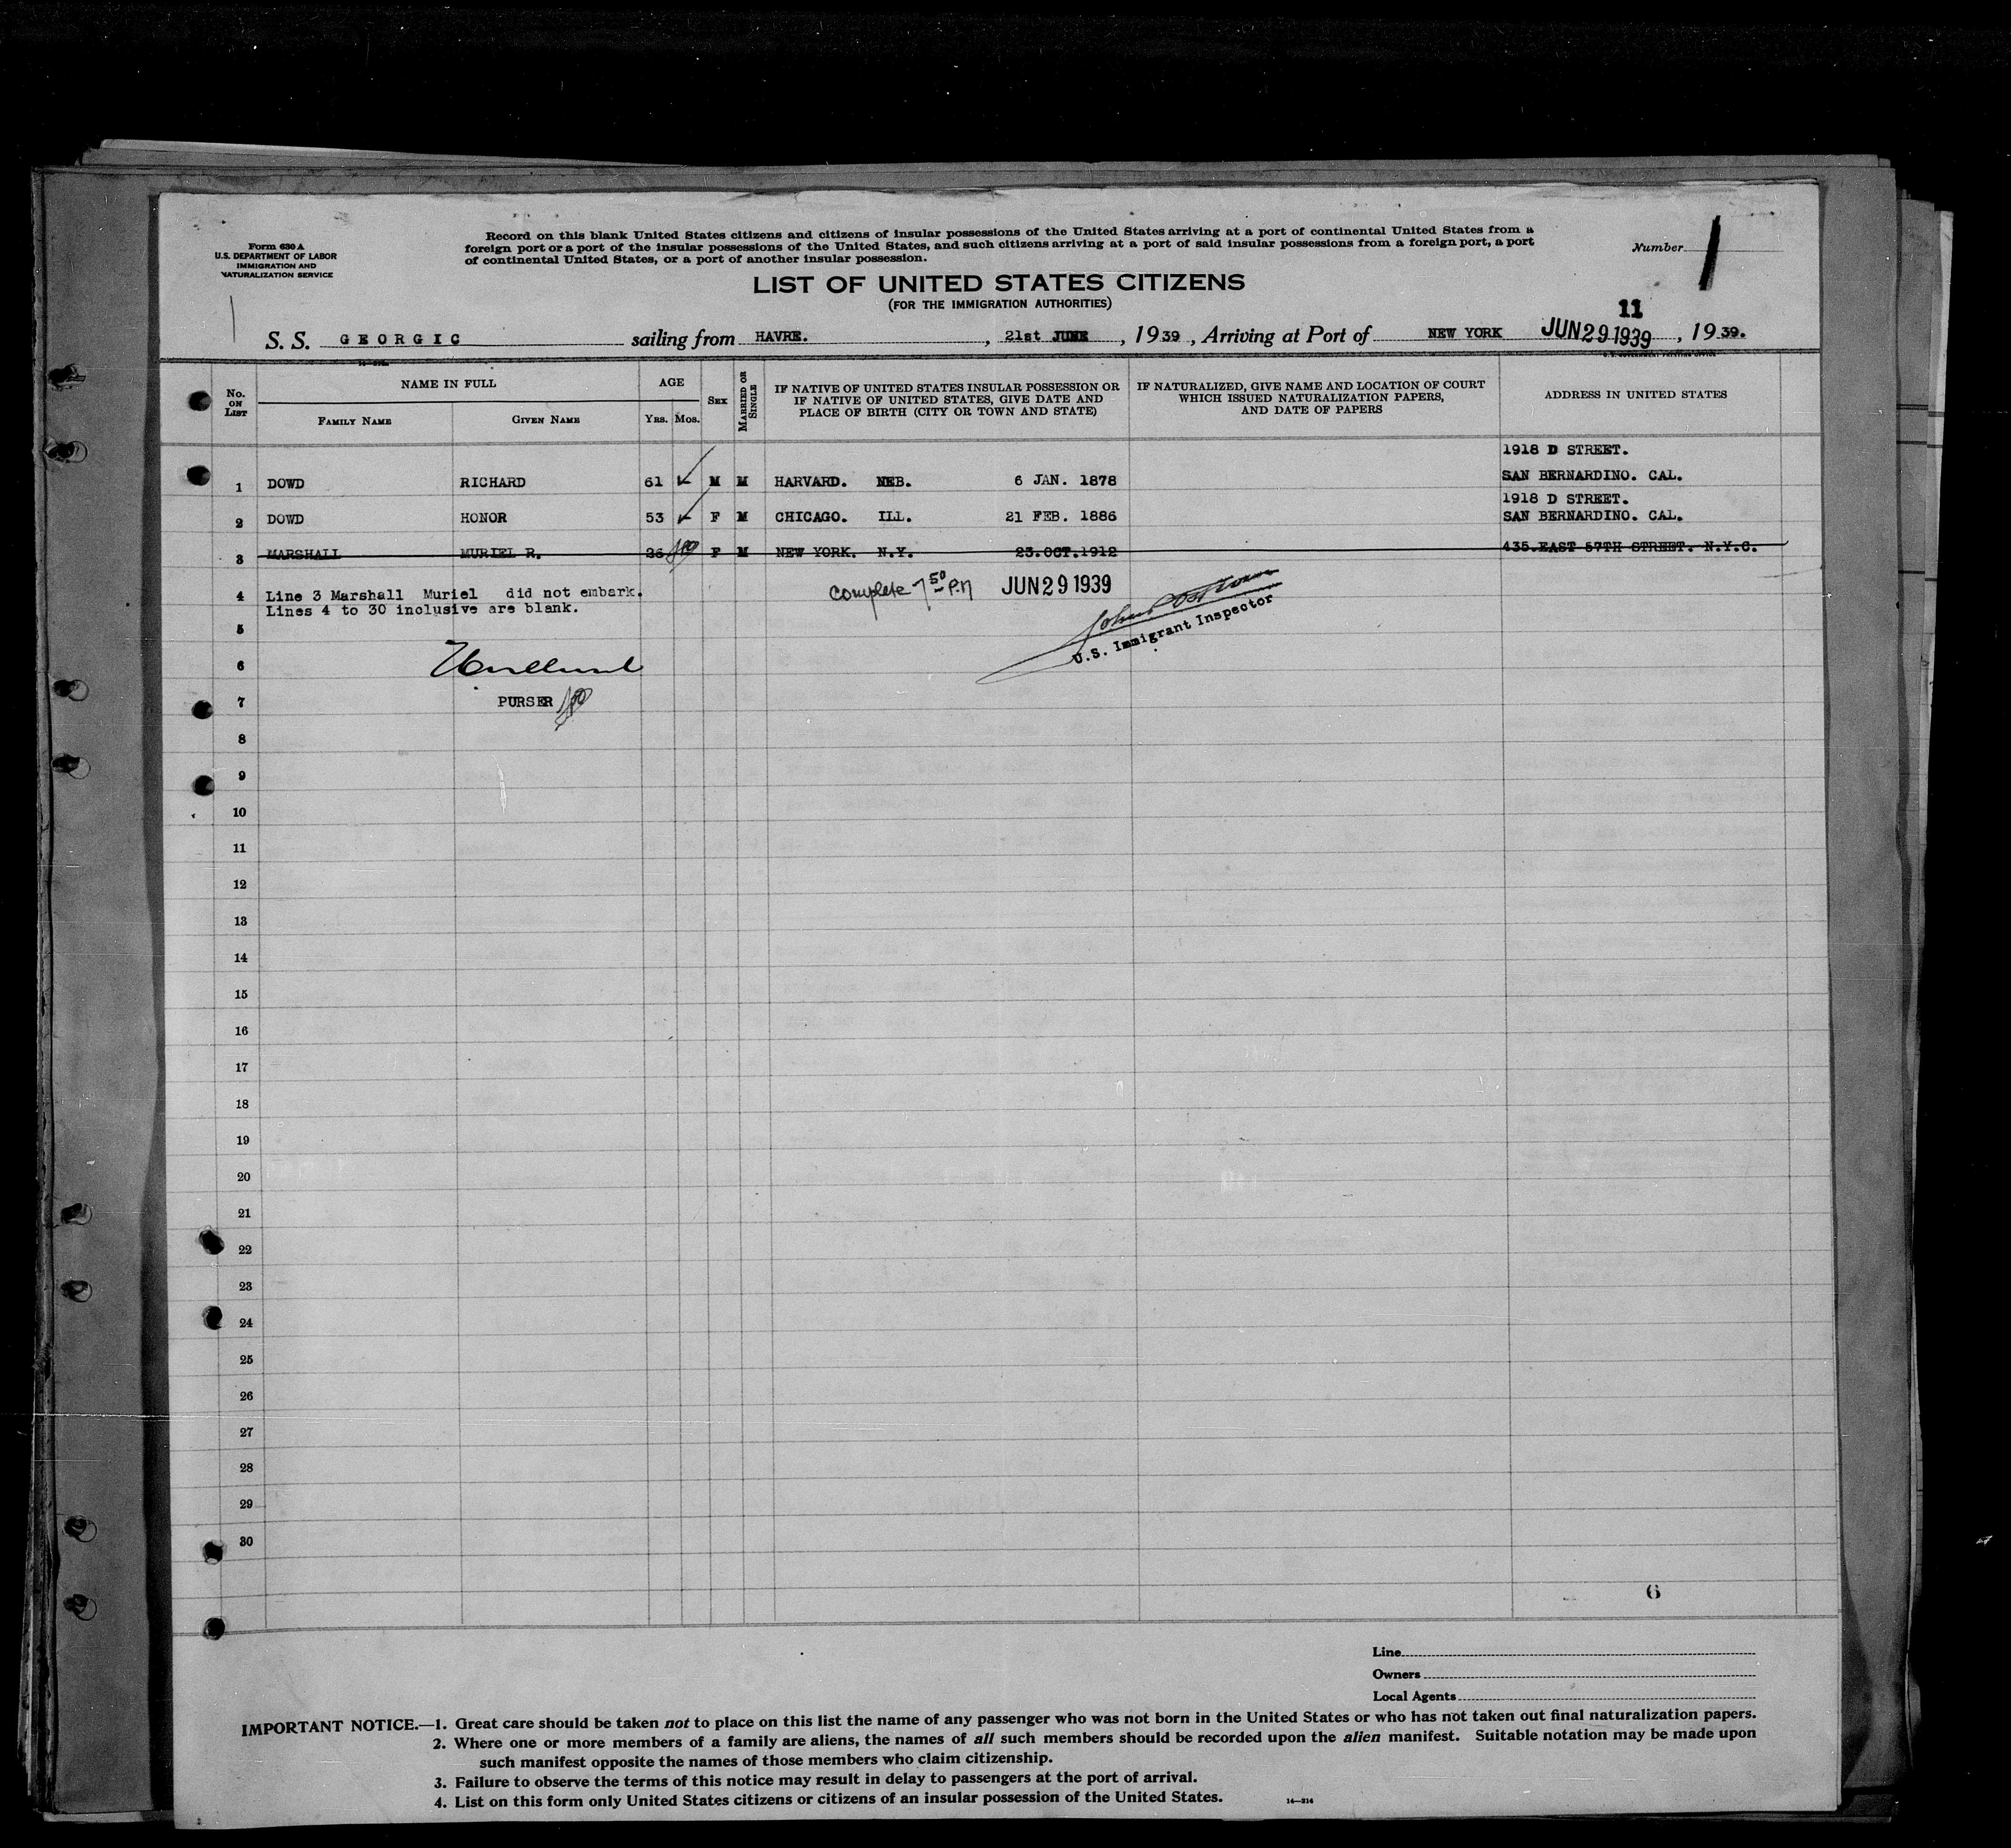 Form 630 A
U.S. DEPARTMENT OF LABOR
IMMIGRATION AND
NATURALIZATION SERVICE
Record on this blank United States citizens and citizens of insular possessions of the United States arriving at a port of continental United States from a
foreign port or a port of the insular possessions of the United States, and such citizens arriving at a port of said insular possessions from a foreign port, a port
of continental United States, or a port of another insular possession.
Number 1
LIST OF UNITED STATES CITIZENS
(FOR THE IMMIGRATION AUTHORITIES)
11
S. S. GEORGIC sailing from HAVRE. , 21st JUNE , 1939 , Arriving at Port of NEW YORK JUN 29 1939 , 1939.
No. ON LIST NAME IN FULL AGE SEX MARRIED OR SINGLE IF NATIVE OF UNITED STATES INSULAR POSSESSION OR IF NATIVE OF UNITED STATES, GIVE DATE AND PLACE OF BIRTH (CITY OR TOWN AND STATE) IF NATURALIZED, GIVE NAME AND LOCATION OF COURT WHICH ISSUED NATURALIZATION PAPERS, AND DATE OF PAPERS ADDRESS IN UNITED STATES
FAMILY NAME GIVEN NAME YRS. MOS.
1918 D STREET.
1 DOWD RICHARD 61 M M HARVARD. NEB. 6 JAN. 1878 SAN BERNARDINO. CAL.
1918 D STREET.
2 DOWD HONOR 53 F M CHICAGO. ILL. 21 FEB. 1886 SAN BERNARDINO. CAL.
3 MARSHALL MURIEL R. 26 F M NEW YORK. N.Y. 23.OCT.1912 435.EAST 57TH STREET. N.Y.C.
4 Line 3 Marshall Muriel did not embark. complete 7 50 P.M JUN 29 1939
Lines 4 to 30 inclusive are blank.
U.S. Immigrant Inspector
5
6
7 PURSER
8
9
10
11
12
13
14
15
16
17
18
19
20
21
22
23
24
25
26
27
28
29
30
6
Line
Owners
Local Agents
IMPORTANT NOTICE.—1. Great care should be taken not to place on this list the name of any passenger who was not born in the United States or who has not taken out final naturalization papers.
2. Where one or more members of a family are aliens, the names of all such members should be recorded upon the alien manifest. Suitable notation may be made upon
such manifest opposite the names of those members who claim citizenship.
3. Failure to observe the terms of this notice may result in delay to passengers at the port of arrival.
4. List on this form only United States citizens or citizens of an insular possession of the United States.
14—214